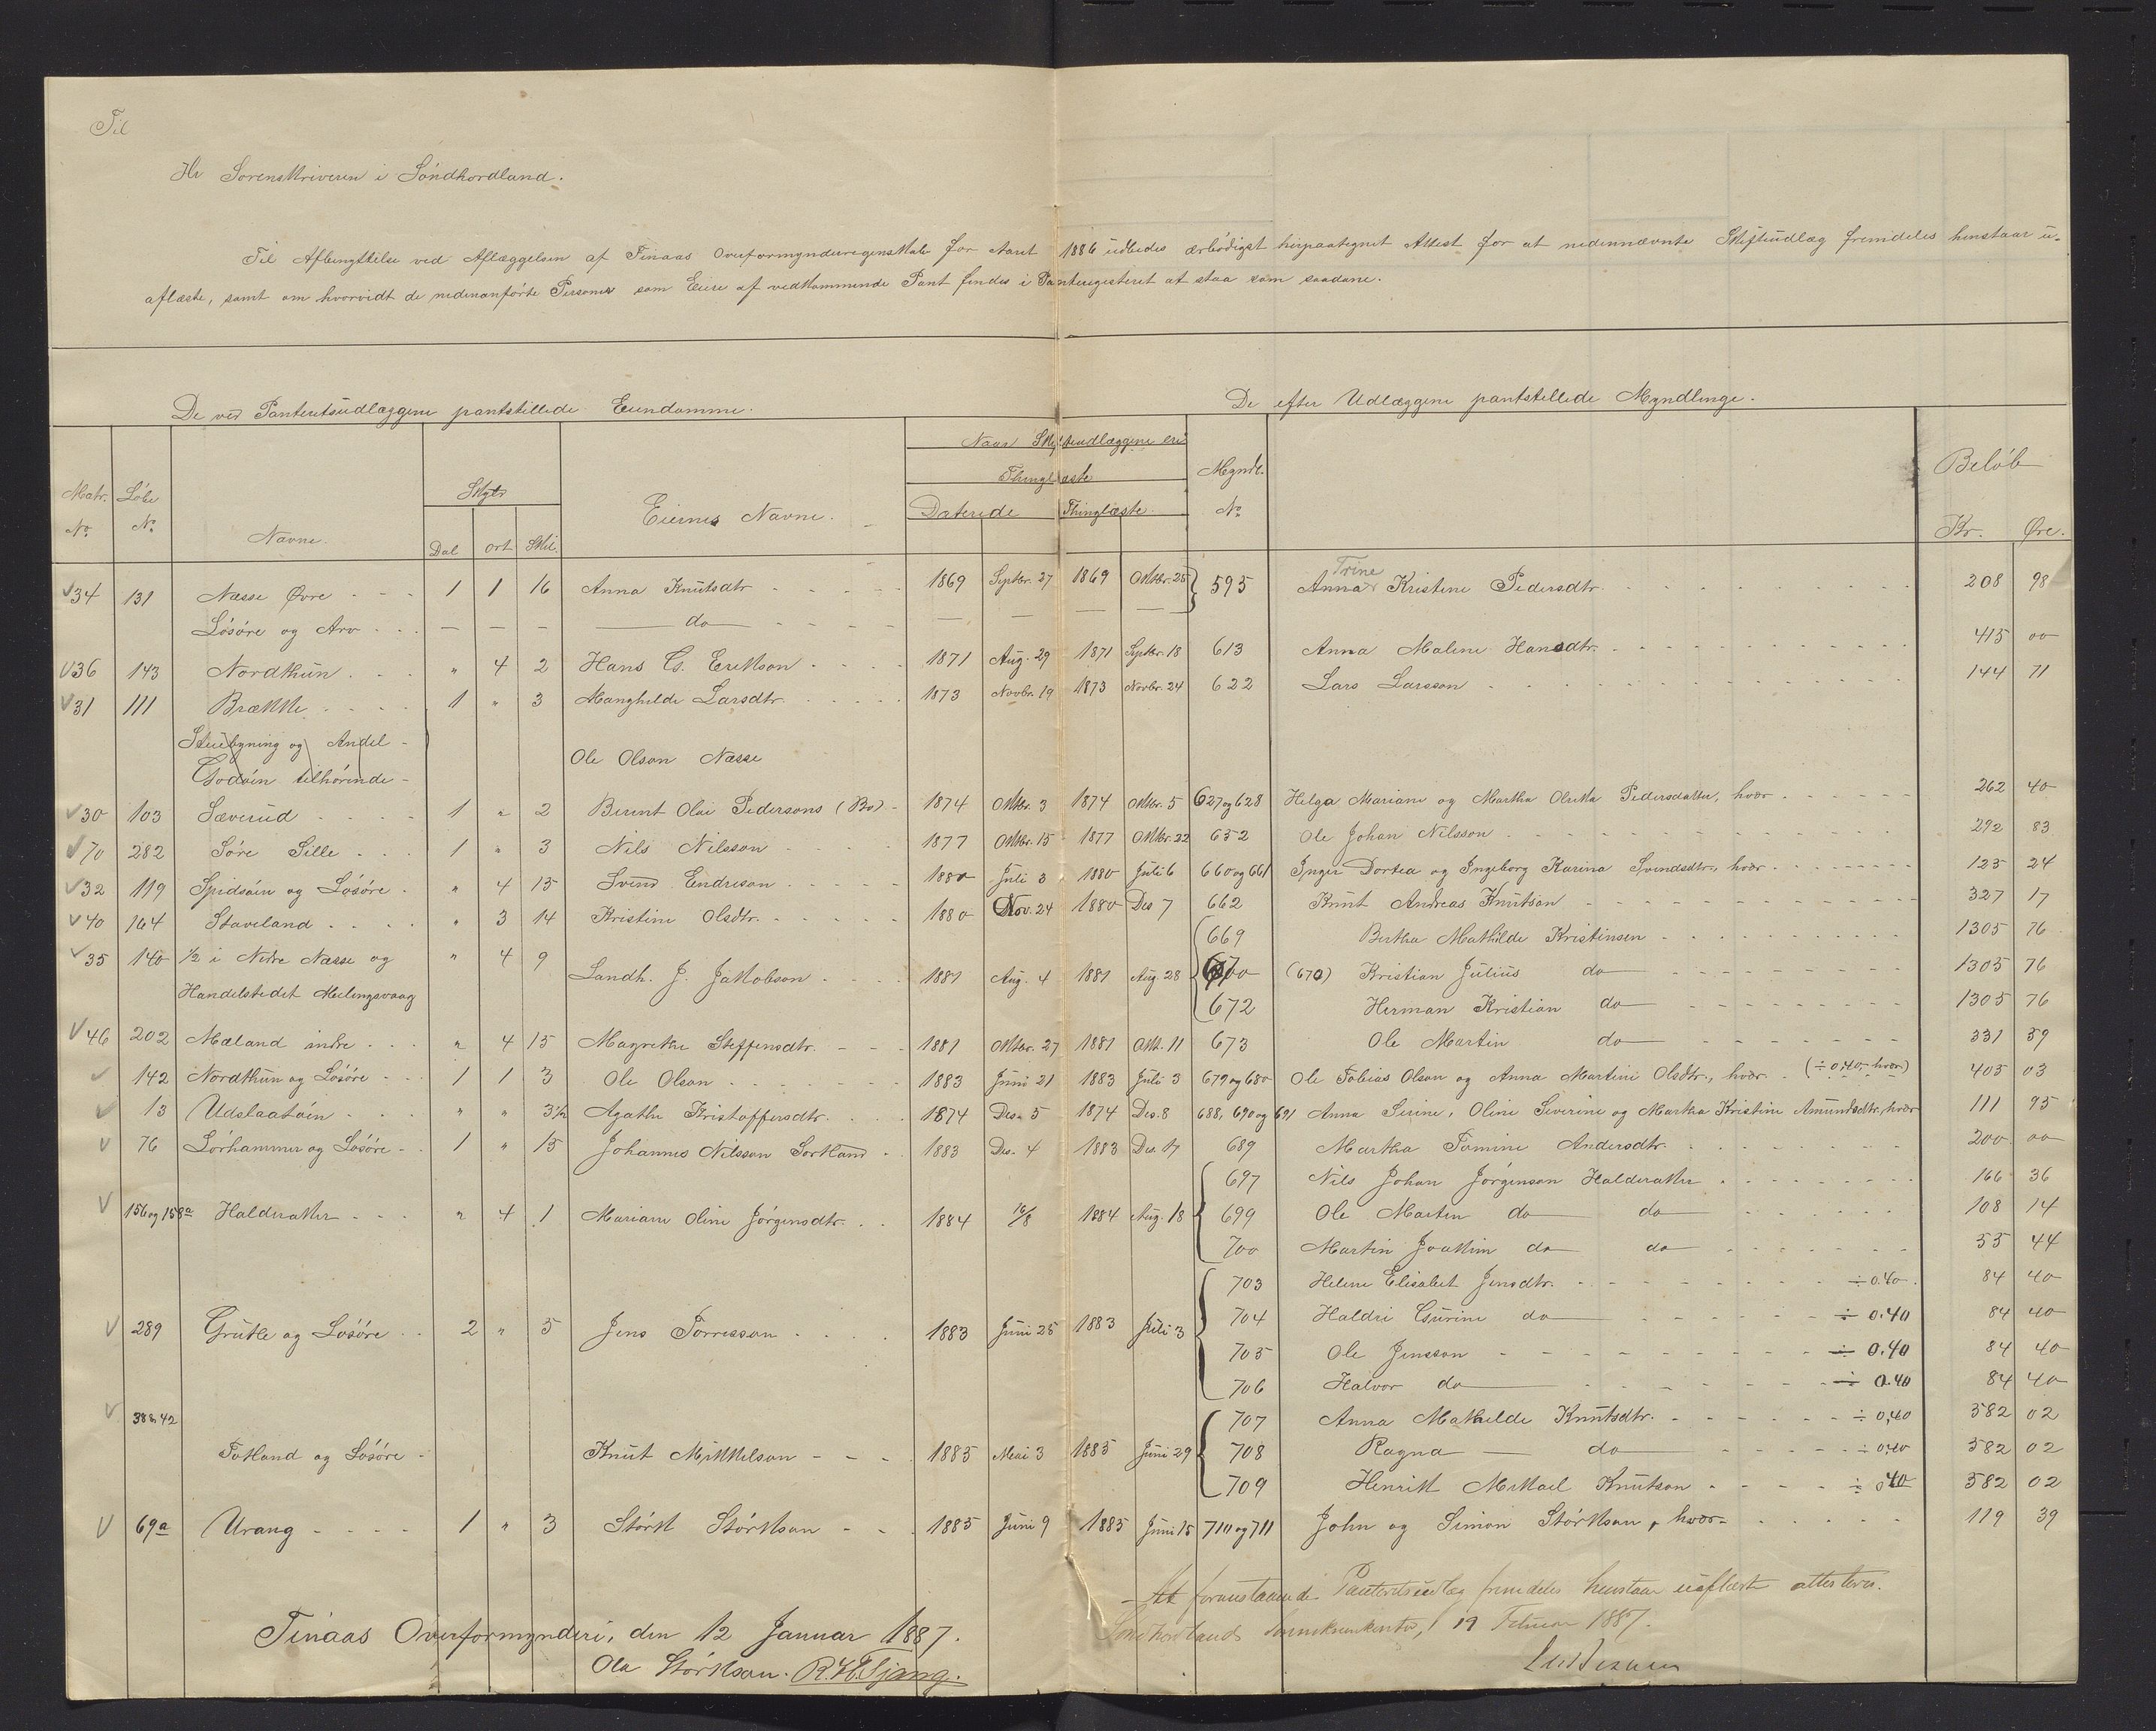 Til
Hr Sorenskriveren i Söndhordland.
Til Afbenyttelse ved Aflæggelsen af Finaas Overformynderregenskab for Aaret 1886 udbedes ærbödigst herpaategnet Attest for at nedennævnte Skifteudlæg fremdeles henstaar u-
aflæste, samt om hvorvidt de nedenanförte Personer som Eiere af vedkommende Pant findes i Panteregisteret at staa som saadane.
De ved Panteretsudlæggene pantstillede Eiendomme. De efter Udlæggene pantstillede Myndlinge.
Matr. No Löbe No Navne. Skyld Dal ort Skil. Eiernes Navne. Naar Skifteudlæggene ere Thinglæste Daterede Thinglæste Myndl. No Beløb Kr. Øre.
34 131 Næsse Øvre 1 1 16 Anna Knutsdtr 1869 Septbr. 27 1869 Oktbr. 25 595 Anna Trine Kristine Pedersdtr. 208 98
Lösöre og Arv — — — do — — — —
36 143 Nordhun " 4 2 Hans G. Erikson 1871 Aug. 29 1871 Septbr. 18 613 Anna Malene Hansdtr. 415 00
31 111 Brække 1 " 3 Manghilde Larsdtr. 1873 Novbr. 19 1873 Novbr. 24 622 Lars Larsson 144 71
Stuebygning og Andel Ole Olson Næsse
Godöen tilhörende
30 103 Sæverud 1 " 2 Bernt Olai Pedersons (Bo) 1874 Oktbr. 3 1874 Oktbr. 5 627 og 628 Helga Mariane og Martha Olrika Pedersdatter, hver 262 40
70 282 Søre Sille 1 " 3 Nils Nilsson 1877 Oktbr. 15 1877 Oktbr. 22 652 Ole Johan Nilsson 292 83
32 119 Spidsöen og Lösöre " 4 15 Svend Endreson 1880 Juli 3 1880 Juli 6 660 og 661 Inger Dortea og Ingeborg Karina Svendsdtr., hver 123 24
40 164 Staveland " 3 14 Kristine Olsdtr. 1880 Nov. 24 1880 Des 7 662 Knut Andreas Knutson 327 17
669 Bertha Mathilde Kristinsen 1305 76
35 140 1/2 i Nedre Næsse og " 4 9 Landh. J. Jakobson 1881 Aug. 4 1881 Aug 28 (670) Kristian Julius do 1305 76
Handelstedet Melingsvaag 672 Herman Kristian do 1305 76
46 202 Mæland indre " 4 15 Magrethe Steffensdtr. 1881 Oktbr. 27 1881 Okt. 11 673 Ole Martin do 331 59
142 Nordhun og Lösöre 1 1 3 Ole Olson 1883 Juni 21 1883 Juli 3 679 og 680 Ole Tobias Olson og Anna Martine Olsdtr., hver (÷ 0,40, hver) 405 03
13 Udslaatöen " " 3½ Agathe Kristoffersdtr. 1874 Des. 5 1874 Des. 8 688, 690 og 691 Anna Serine, Oline Severine og Martha Kristine Amundsdtr, hver 111 95
76 Sörhammer og Lösöre 1 " 15 Johannes Nilsson Sortland 1883 Des. 4 1883 Des. 17 689 Martha Tomine Andersdtr. 200 00
697 Nils Johan Jörgenson Halderaker 166 36
156 og 158a Halderaker " 4 1 Mariane Oline Jörgensdtr. 1884 16/8 1884 Aug. 18 699 Ole Martin do do 108 14
700 Martin Joakim do do 55 44
703 Helene Elisabet Jensdtr. ÷ 0.40 84 40
289 Grutle og Lösöre 2 " 5 Jens Torresson 1883 Juni 25 1883 Juli 3 704 Haldri Gurine do ÷ 0.40 84 40
705 Ole Jensson ÷ 0.40 84 40
706 Halvor do ÷ 0.40 84 40
38 & 42 707 Anna Mathilde Knutsdtr. ÷ 0,40 582 02
Totland og Lösöre Knut Mikkelson 1885 Mai 3 1885 Juni 29 708 Ragna do ÷ 0,40 582 02
709 Henrik Mikael Knutson ÷ 0,40 582 02
69a Urang 1 " 3 Störk Störkson 1885 Juni 9 1885 Juni 15 710 og 711 John og Simon Störkson, hver 119 39
At foranstaaende Panteretsudlæg fremdeles henstaar uaflæst attesteres.
Söndhordlands Sorenskriverkontor, 19 Februar 1887.
Finaas Overformynderi, den 12 Januar 1887.
Ola Störkson. R. H. Tjong.